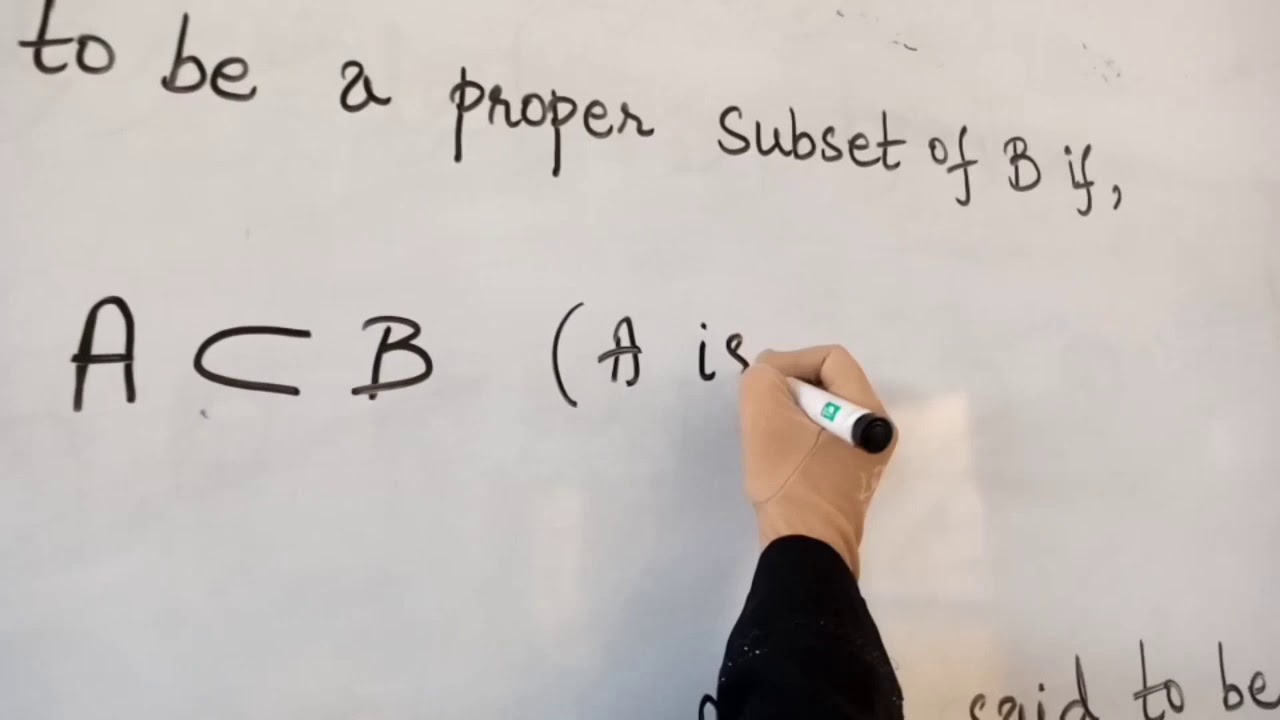 to be a proper subset of B if,
A ⊂ B (A is
said to be